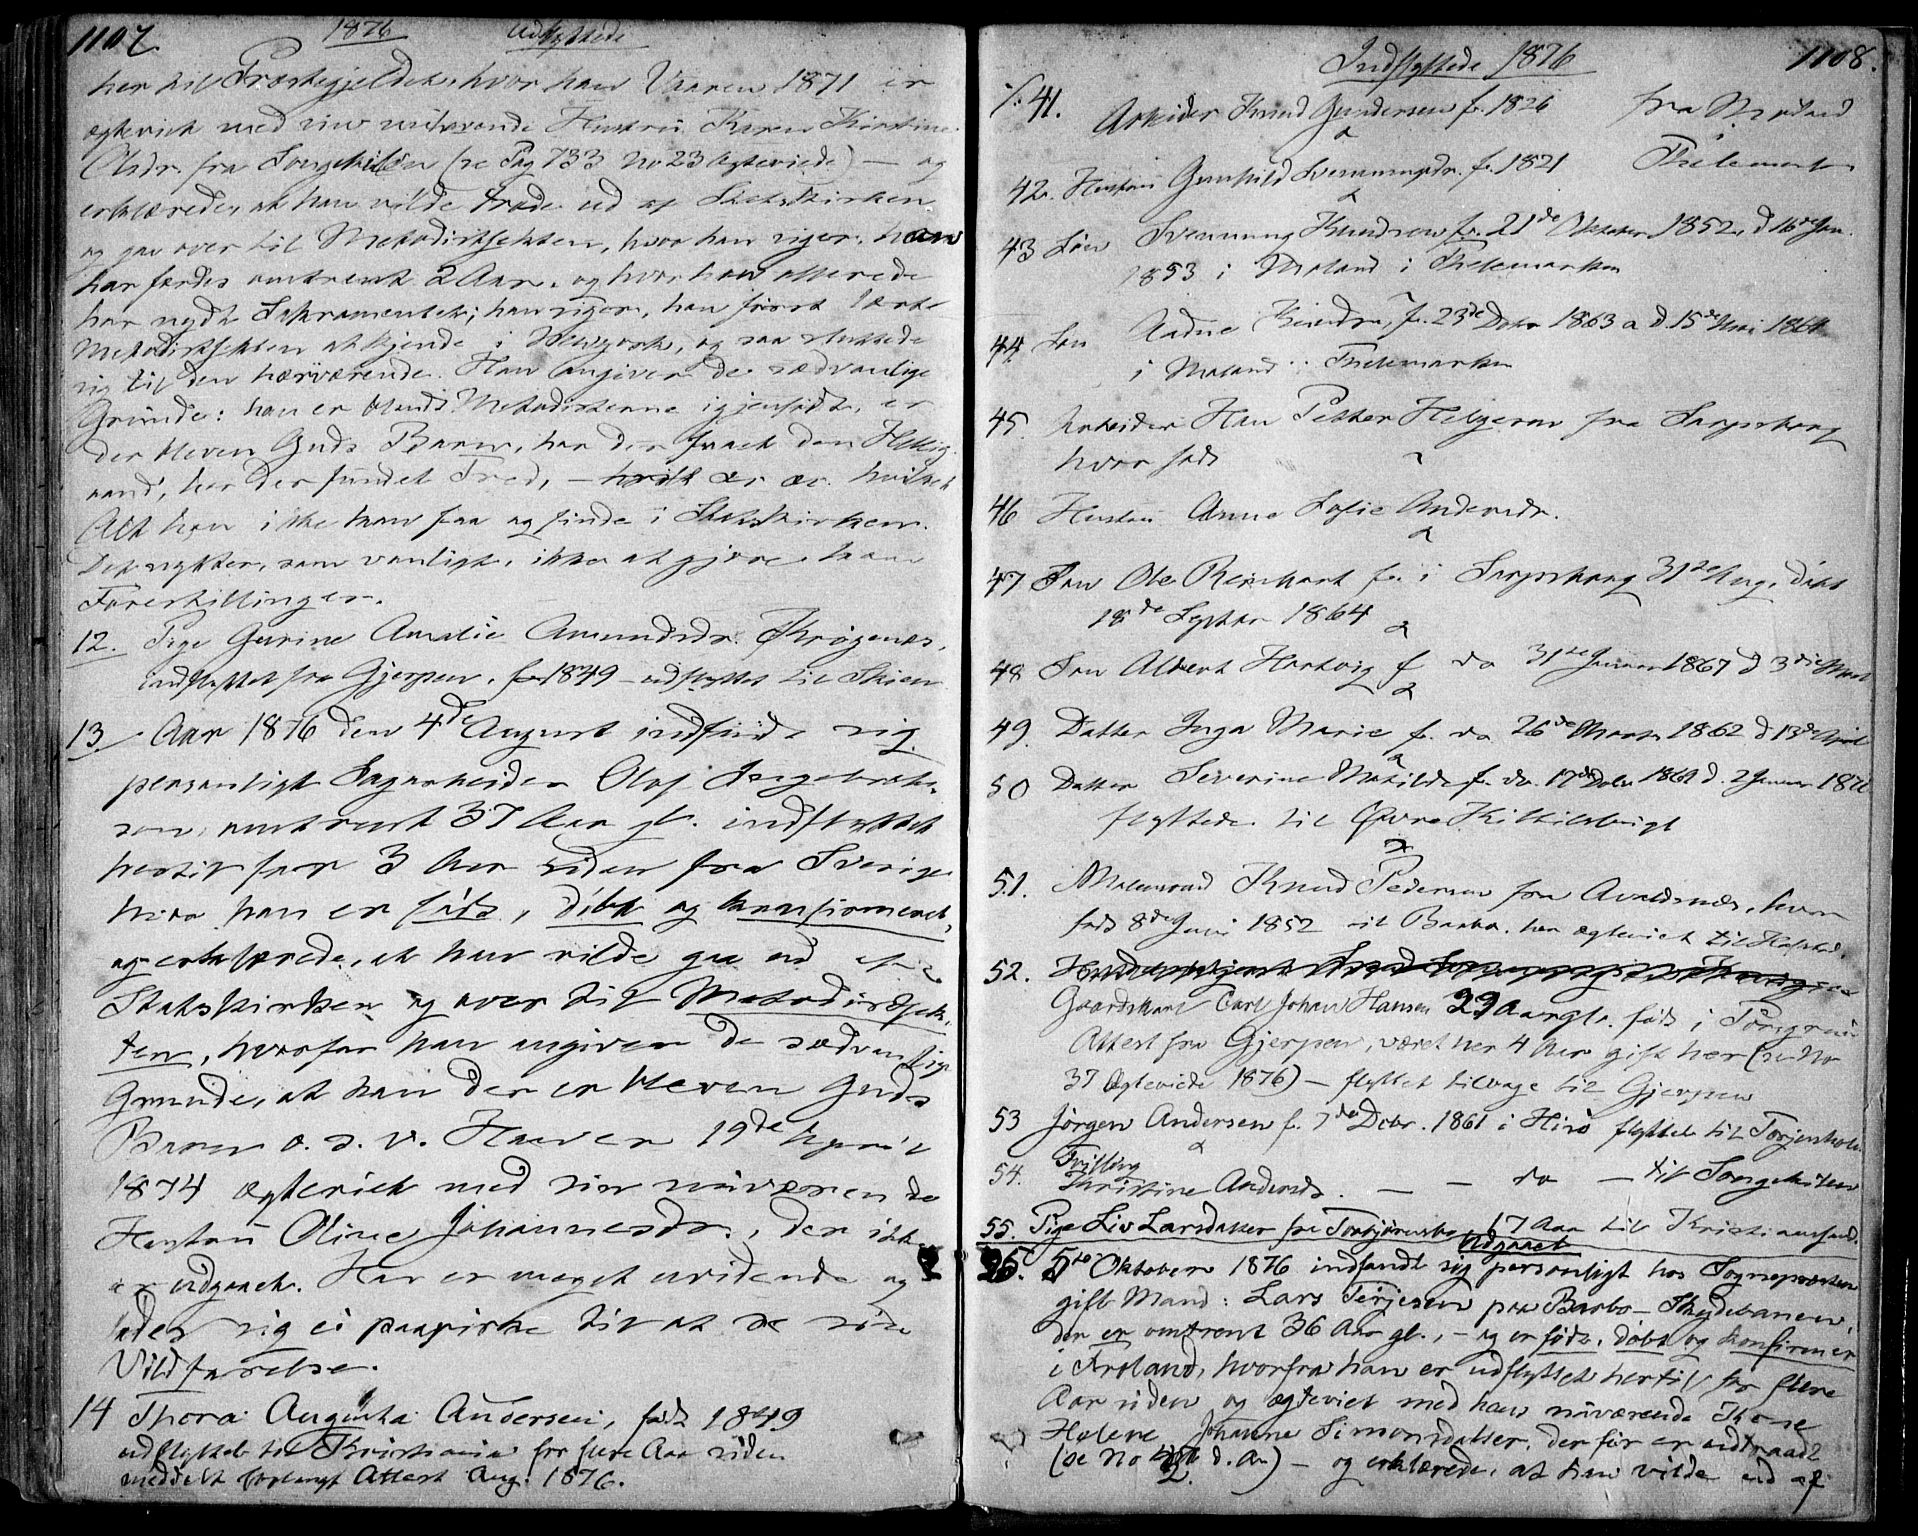 1107. 1876 Udflyttede
her til Præstegjeldet, hvor han Vaaren 1871 er
ægteviet med sin nuværende Hustru Karen Kirstine
Olsdr. fra Songekilen (se Pag 733 No 23 Ægteviede) — og
erklærede, at han vilde træde ud af Statskirken
og gaa over til Metodistsekten, hvor han siger, han
har færdes omtrent 2 Aar, og hvor han allerede
har nydt Sakramentet; han siger, han først lærte
Metodistsekten at kjende i Newyork, og saa sluttede
sig til den herværende. Han angiver de sædvanlige
Grunde: han er blandt Metodisterne igjenfødt, er
der bleven Guds Barn, har der faaet den Hellig-
aand, har der fundet Fred, — hvilket
Alt han ikke kan faa og finde i Statskirken.
Det nytter, som vanligt, ikke at gjøre ham
Forestillinger.
12. Pige Gurine Amalie Amundsdr. Krøgenæs,
indflyttet fra Gjerpen, f. 1849 — udflyttet til Skien
13. Aar 1876 den 4de August indfandt sig
personligt Sagarbeider Olof Ingebrikt-
son, omtrent 37 Aar gl. indflyttet
hertil for 3 Aar siden fra Sverige
hvor han er født, døbt og konfirmeret,
og erklærede, at han vilde gaa ud af
Statskirken og over til Metodistsek-
ten, hvorfor han angiver de sædvanlige
Grunde, at han der er bleven Guds
Barn o. s. v. Han er 19de April
1874 ægteviet med sin nuværende
Hustru Oline Johannesdr., der ikke
er udgaaet. Han er meget uvidende og
lader sig ei paavirke til at se sin
Vildfarelse.
14 Thora Augusta Andersen, født 1849
udflyttet til Kristiania for flere Aar siden
meddelt forlangt Attest Aug. 1876.
Indflyttede 1876 1108.
41. Arbeider Knud Gundersen f. 1826 fra Moland
42. Hustru Gunhild Svenningsdr. f. 1821 Thelemarken
43 Søn Svenning Knudsen f. 21de Oktober 1852, d 16de Jan.
1853 i Moland i Thelemarken
44 Søn Aadne Knudsen, f. 23de Debr 1863 d. 15de Mai 1864
i Moland i Thelemarken
45. Arbeider Hans Petter Helgesen fra Sarpsborg
hvor født
46 Hustru Anne Sofie Andersdr.
47 Søn Ole Reinhart f. i Sarpsborg 31te Aug. døbt
18de Septbr 1864
48 Søn Albert Hartvig f do 31te Januar 1867 d 3die Marts
49. Datter Inga Marie f. do 26de Marts 1862 d 13de April
50 Datter Severine Matilde f. do. 17de Debr 1869 d. 2 Januar 1870
flyttede til Øvre Kittilsbugt
51. Matrosend Knud Pedersen fra Avaldsnæs, hvor
født 8de Juni 1852 til Barbo. her ægteviet til
52.
Gaardskarl Carl Johan Hansen 29 Aar gl. født i Porsgrun
Attest fra Gjerpen, været her 4 Aar gift her (se No
37 Ægteviede 1876) — flyttet tilbage til Gjerpen
53 Jørgen Andersen f. 7de Debr. 1861 i Hisø flyttet til Torjenholm
54. Tvilling
Thristine Andersdr. — — do — til Songekilen
55. Pige Liv Larsdatter fra Torbjørnsbo 17 Aar til Kristianssand.
Udgaaet
5te Oktober 1876 indfandt sig personligt hos Sognepræsten
gift Mand: Lars Terjesen paa Barbo-Skydebanen,
der er omtrent 36 Aar gl., — og er født, døbt og konfirmer
i Froland, hvorfra han er udflyttet hertil for flere
Aar siden og ægteviet med hans nuværende Kone
Helene Johanne Simonsdatter, der før er udtraadt
(se No 2 d. A.) — og erklærede, at han vilde ud af